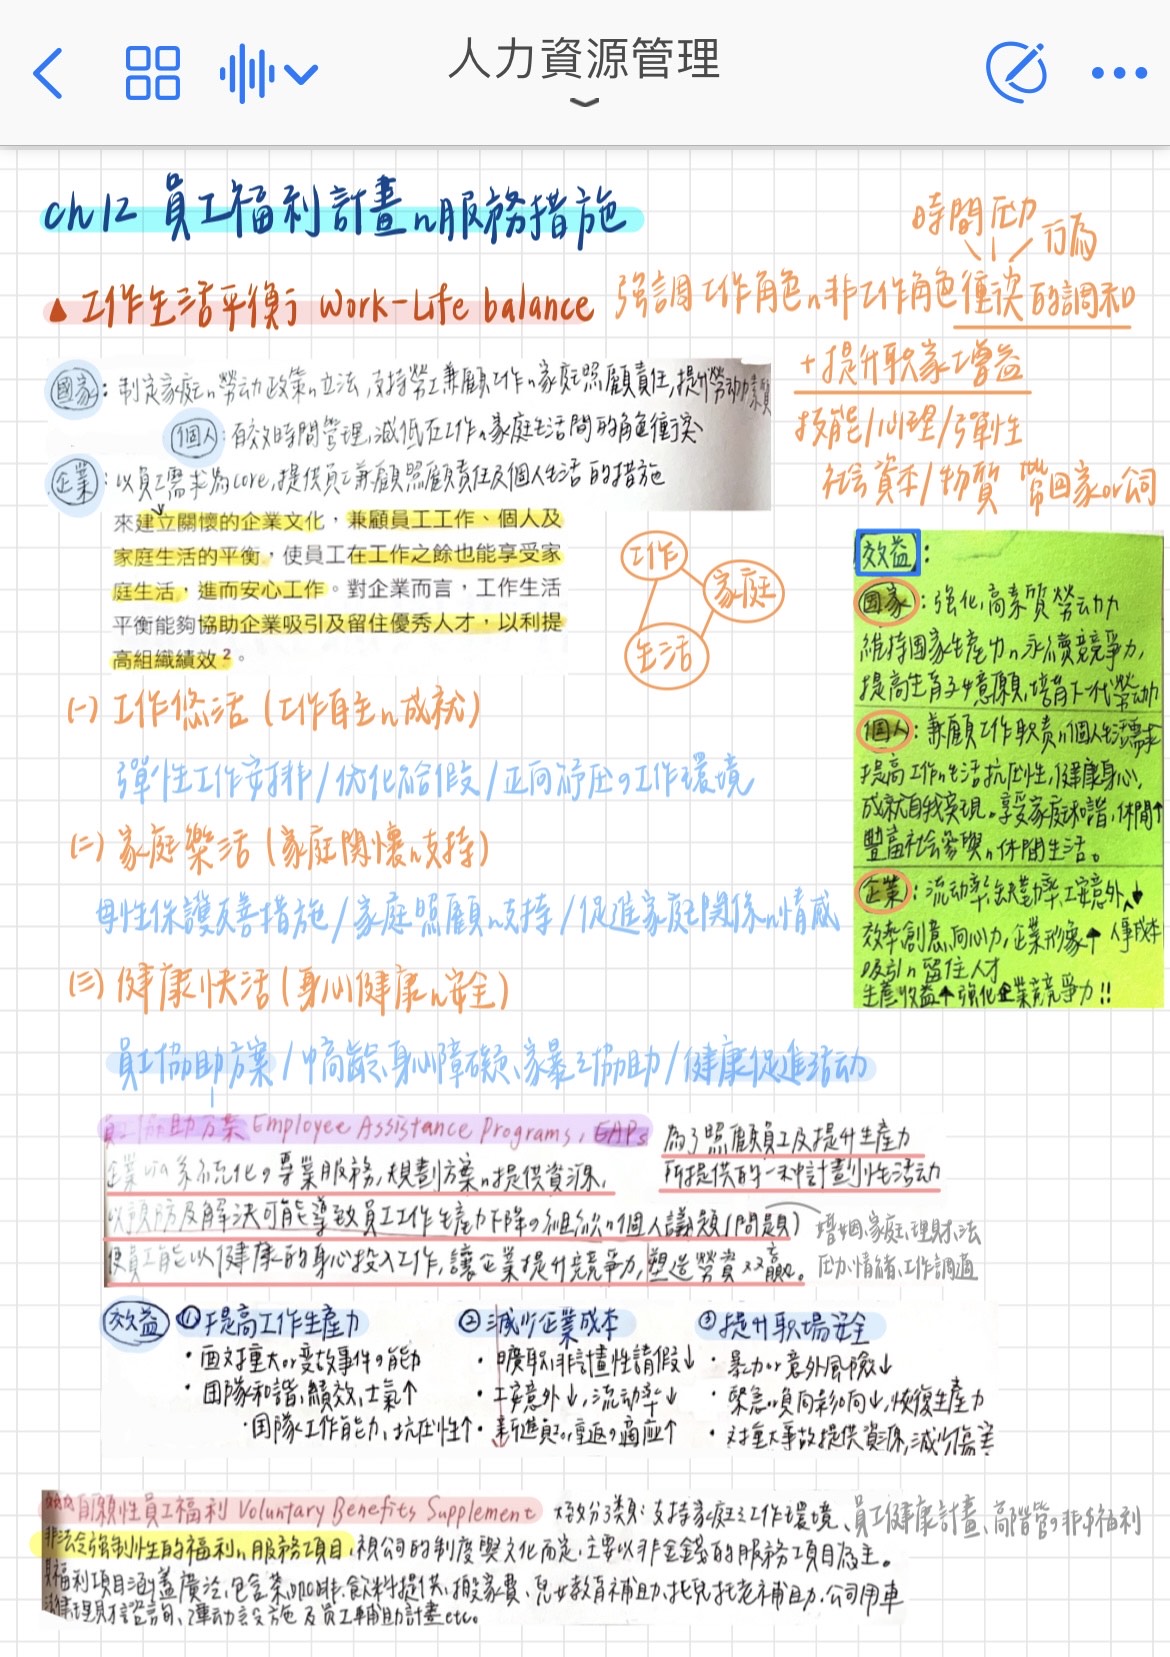 人力資源管理
ch12 員工福利計畫n服務措施
時間 壓力 行為
▲ 工作生活平衡 Work-Life balance
強調工作角色n非工作角色衝突的調和
+提升职家增益
技能/心理/彈性
社會資本/物質 帶回家or公司
國家：制定家庭n勞动政策n立法,支持勞工兼顧工作n家庭照顧責任,提升勞动力素質
個人：有效時間管理,減低在工作n家庭生活間的角色衝突
企業：以員工需求為core,提供員工兼顧照顧責任及個人生活的措施
來建立關懷的企業文化，兼顧員工工作、個人及
家庭生活的平衡，使員工在工作之餘也能享受家
庭生活，進而安心工作。對企業而言，工作生活
平衡能夠協助企業吸引及留住優秀人才，以利提
高組織績效²。
工作
家庭
生活
效益：
國家：強化,高素質勞动力
維持國家生產力n永續競爭力,
提高生育子女意願,培育下一代勞动力
個人：兼顧工作职責n個人生活需求
提高工作n生活抗压性,健康身心,
成就自我实現。享受家庭和諧,休閒↑
豐富社会參與n休閒生活。
企業：流动率、缺勤率、工安意外↓
效率創意,向心力,企業形象↑ 人事成本
吸引n留住人才
生產收益↑強化企業競爭力!!
(一) 工作悠活 (工作自主n成就)
彈性工作安排/优化給假/正向紓压の工作環境
(二) 家庭樂活 (家庭関懷n支持)
母性保護友善措施/家庭照顧n支持/促進家庭関係n情感
(三) 健康快活 (身心健康n安全)
員工協助方案/中高齡、身心障礙、家暴之協助/健康促進活动
員工協助方案 Employee Assistance Programs, EAPs
為了照顧員工及提升生產力
所提供的一种計畫性活动
企業以系統化の專業服務,規劃方案n提供資源,
以預防及解決可能導致員工工作生產力下降の組織n個人議題(問題)
使員工能以健康的身心投入工作,讓企業提升競爭力,塑造勞資双贏。
婚姻、家庭、理財、法
压力、情緒、工作調適
效益 ①提高工作生產力
・面对重大or变故事件の能力
・团隊和諧,績效,士氣↑
・团隊工作能力、抗压性↑
②減少企業成本
・曠职/非計畫性請假↓
・工安意外↓,流动率↓
・新進員工or重返の適應↑
③提升职場安全
・暴力or意外風險↓
・緊急n負向影响↓,恢復生產力
・对重大事故提供資源,減少傷害
自願性員工福利 Voluntary Benefits Supplement
大致分3類：支持家庭之工作環境、員工健康計畫、高階管の非年福利
非法令強制性的福利n服務項目,視公司的制度與文化而定,主要以非金錢的服務項目為主。
其福利項目涵蓋廣泛,包含茶、咖啡、飲料提供、搬家費、兒女教育補助、托兒托老補助、公司用車
法律理財諮詢、運动設施及員工輔助計畫etc。